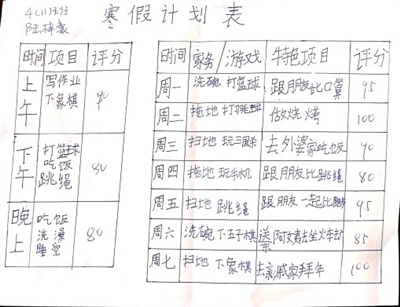 4(1)班
寒假计划表
时间 项目 评分
上午 写作业 下象棋 90
下午 打篮球 吃饭 跳绳 80
晚上 吃饭 洗澡 睡觉 80
时间 家务/游戏 特色项目 评分
周一 洗碗 打篮球 跟朋友比口算 95
周二 拖地 打羽毛球 做烧烤 100
周三 扫地 玩三国杀 去外婆家吃饭 90
周四 拖地 玩手机 跟朋友比跳绳 80
周五 扫地 跳绳 跟朋友一起比跑步 95
周六 洗碗 下五子棋 送阿姨去坐火车 85
周七 扫地 下象棋 去亲戚家拜年 100